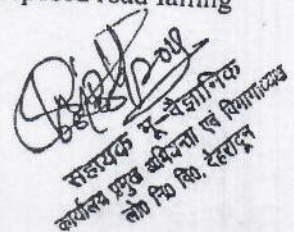 road falling
सहायक भू-वैज्ञानिक
कार्यालय प्रमुख अभियन्ता एवं विभागाध्यक्ष
लो० नि० वि०, देहरादून